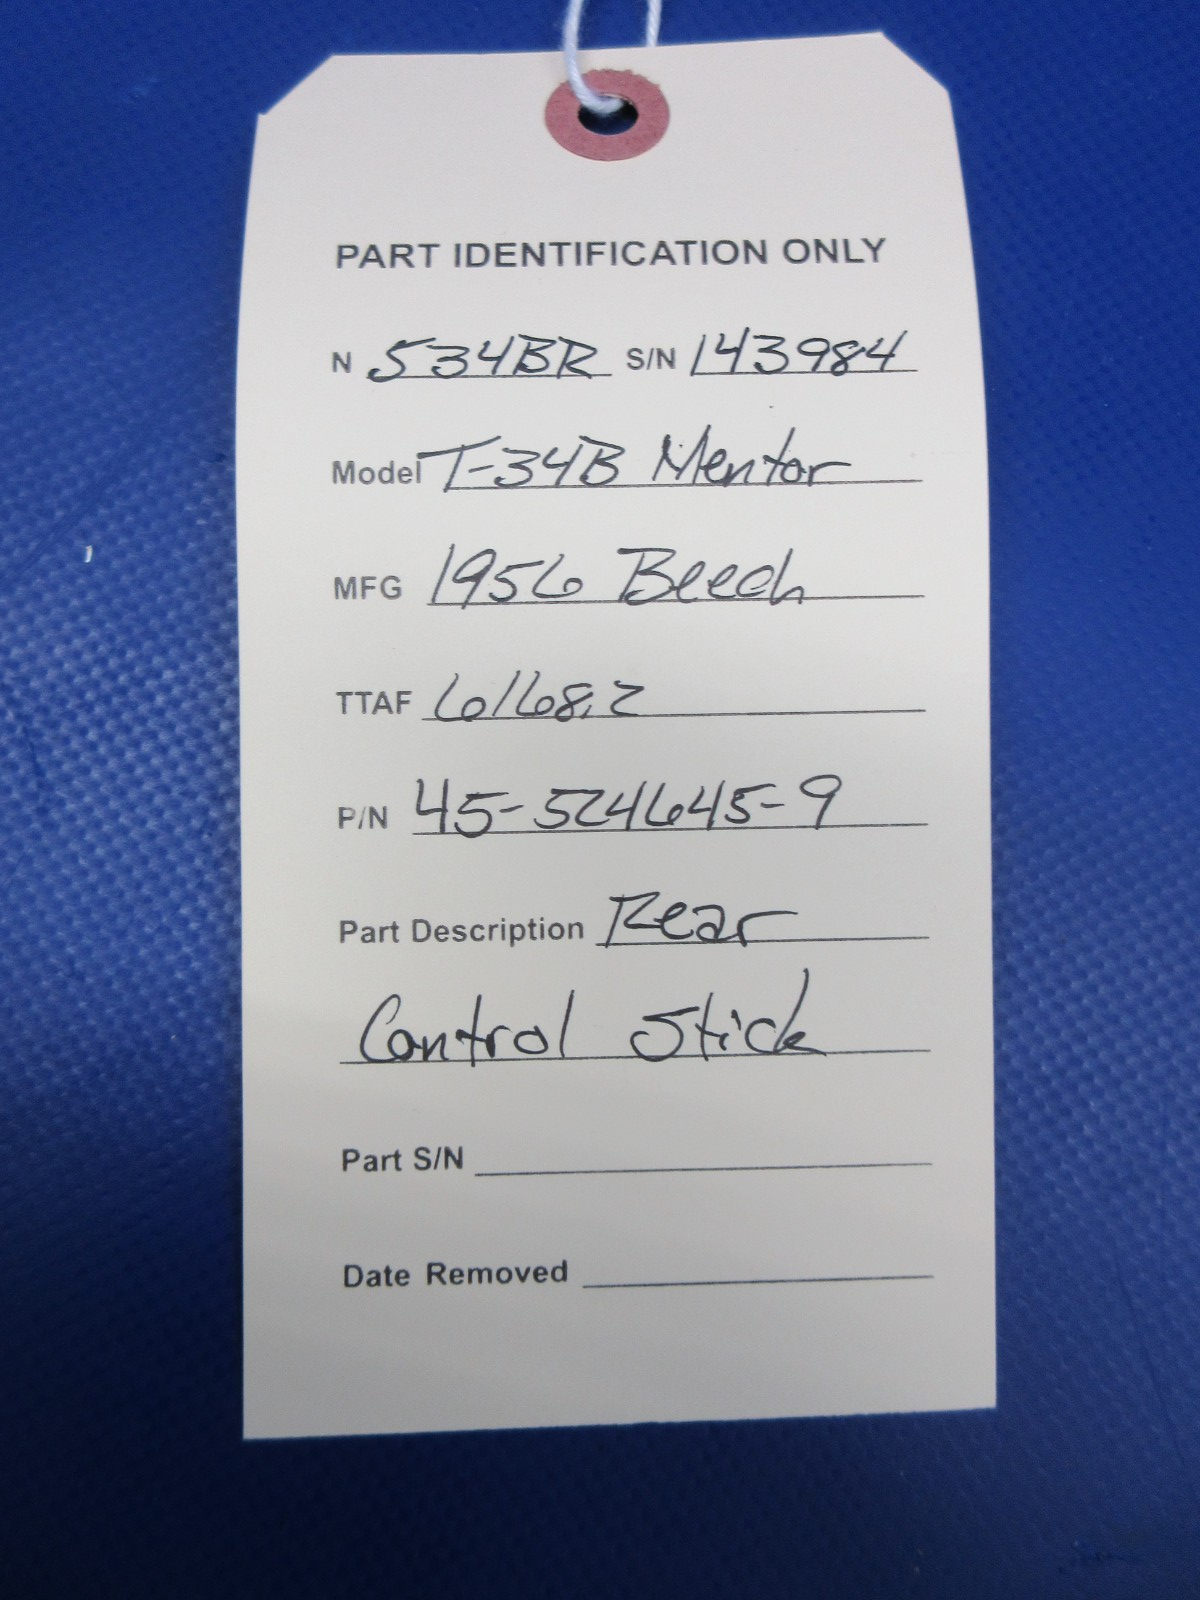 PART IDENTIFICATION ONLY
N 534BR S/N 143984
Model T-34B Mentor
MFG 1956 Beech
TTAF 6168.2
P/N 45-524645-9
Part Description Rear
Control Stick
Part S/N
Date Removed